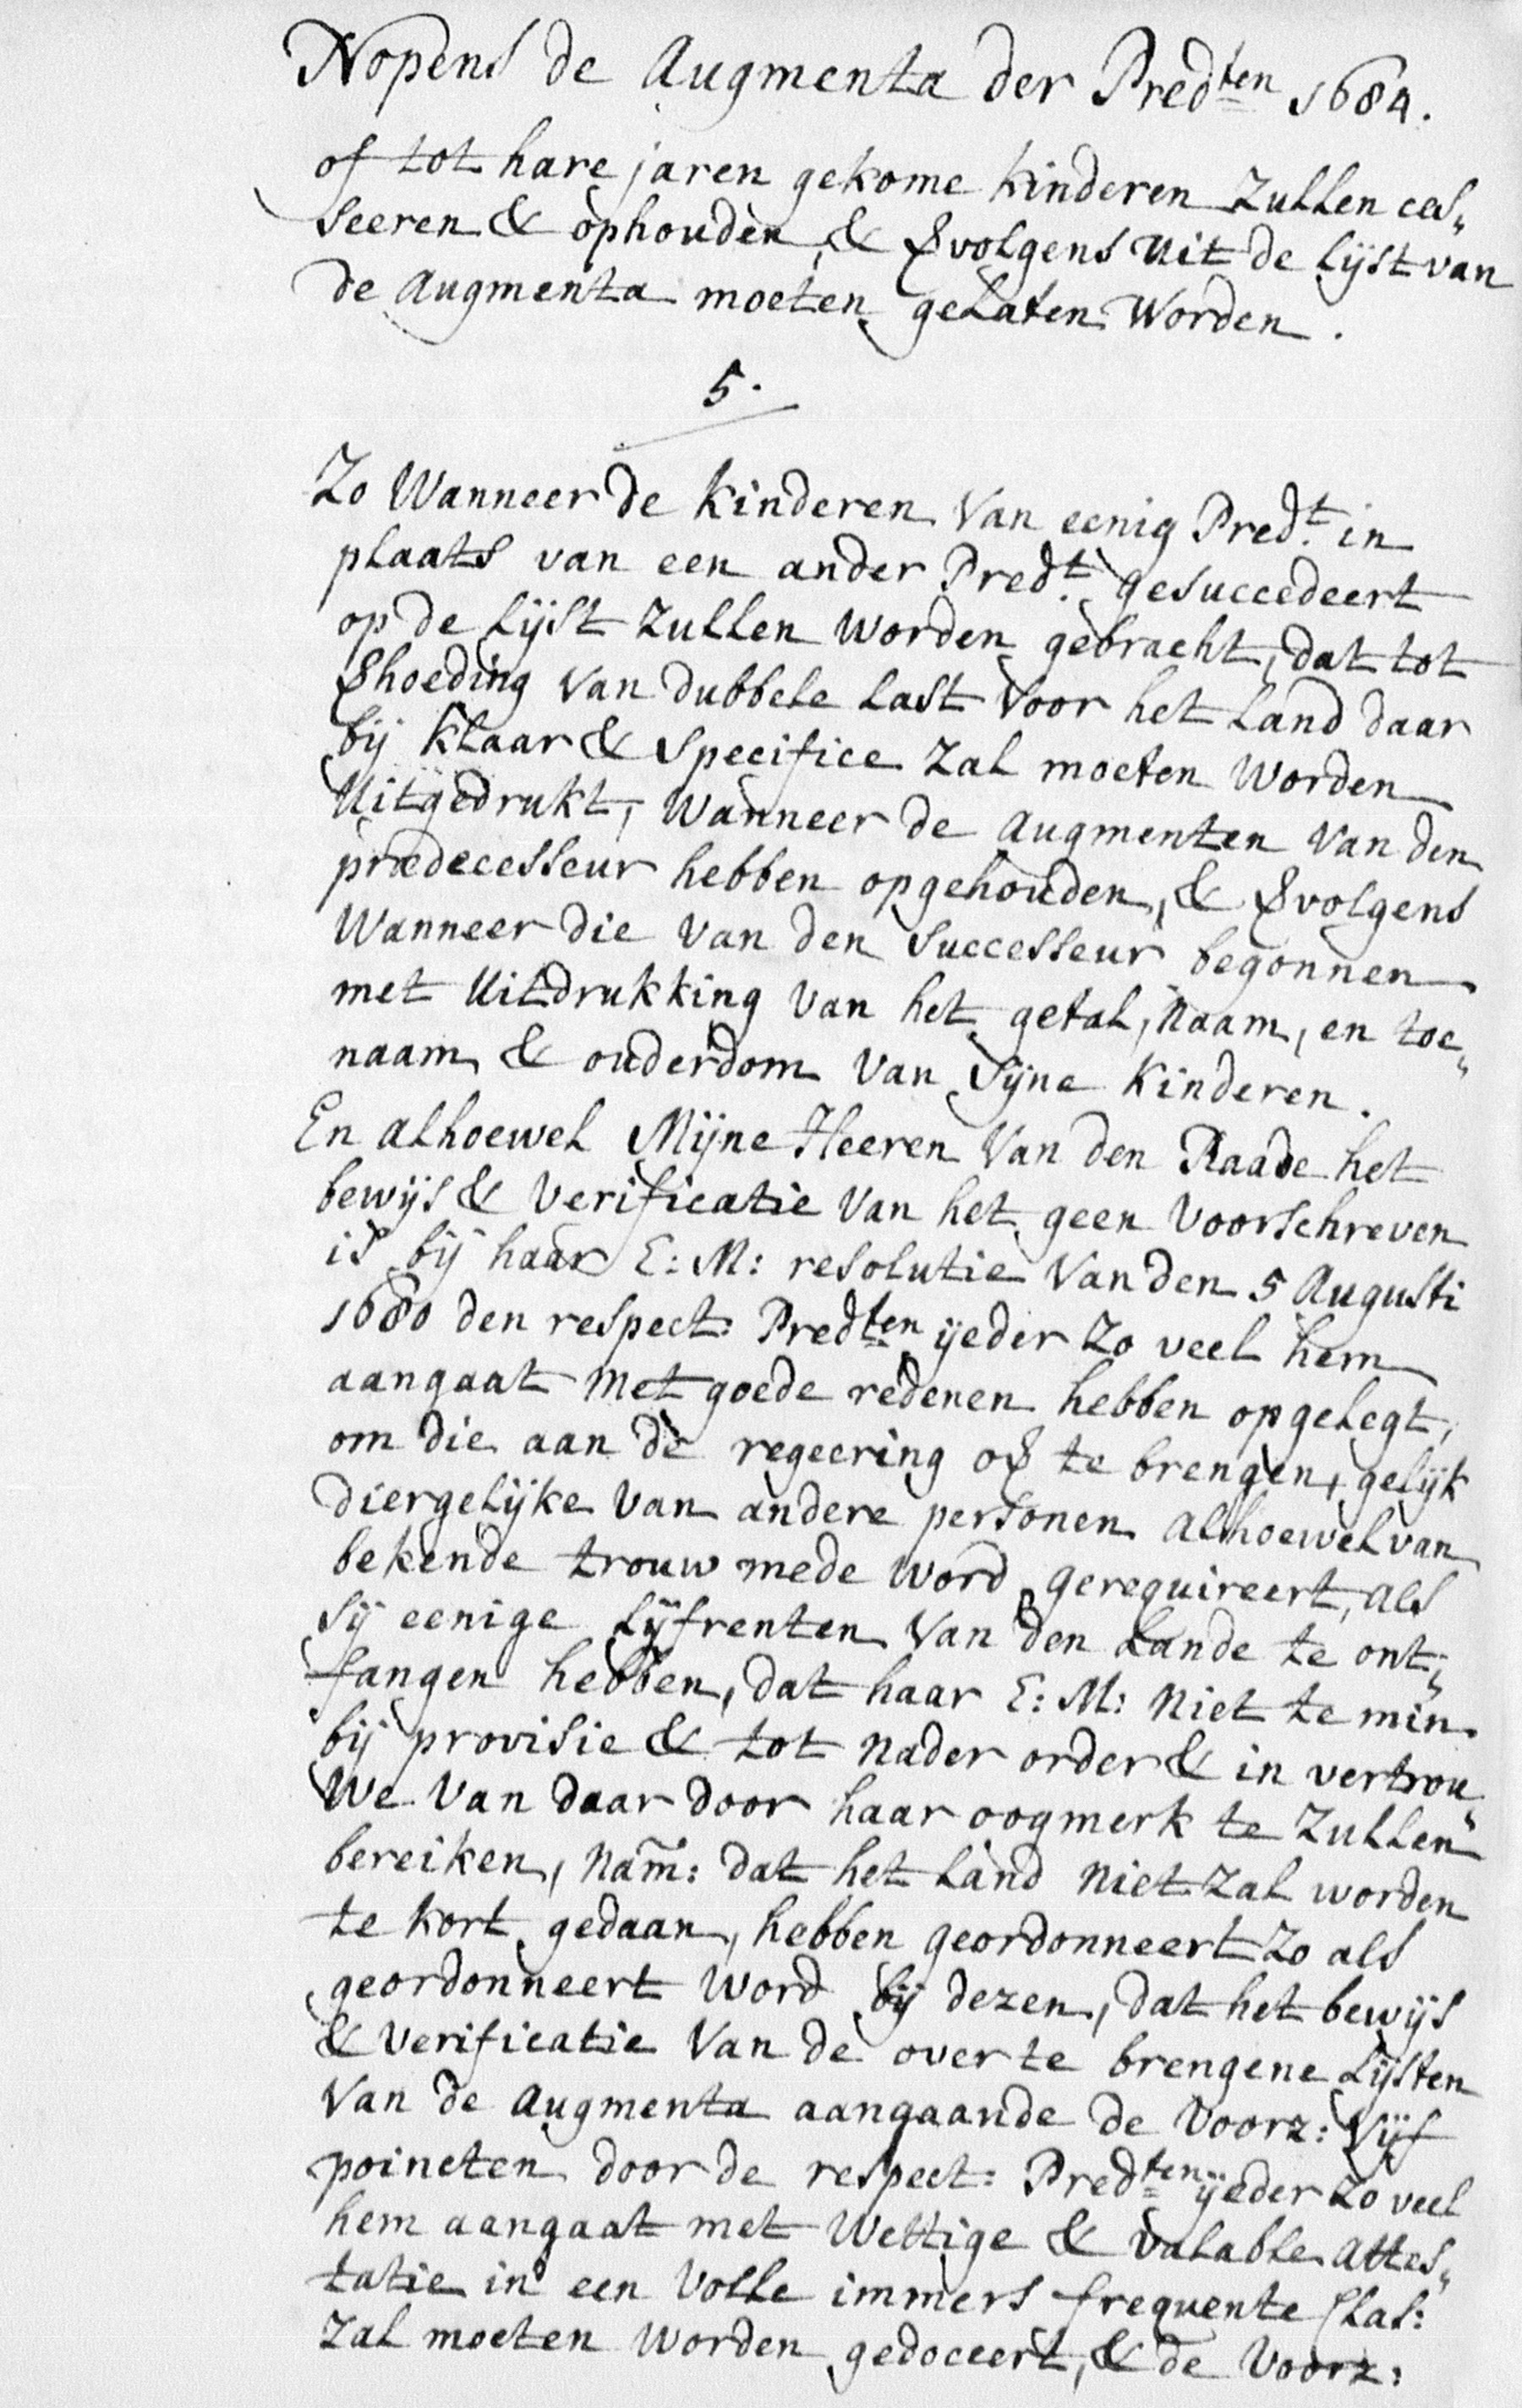 Nopens de Augmenta der Predten 1684.
of tot hare jaren gekome kinderen zullen ces„
seeren & ophouden, & &volgens uit de lijst van
de Augmenta moeten gelaten worden.
5.
Zo Wanneer de kinderen van eenig Predt. in
plaats van een ander Predt. gesuccedeert
op de lijst zullen worden gebracht, dat tot
&hoeding van dubbele last voor het land daar
bij klaar & specifice zal moeten worden
uitgedrukt, wanneer de augmenten van den
prædecesseur hebben opgehouden, & &volgens
Wanneer die van den successeur begonnen
met uitdrukking van het getal, naam, en toe„
naam & ouderdom van sijne kinderen.
En alhoewel Mijne Heeren van den Raade het
bewijs & verificatie van het geen voorschreven
is bij haar E: M: resolutie van den 5 Augusti
1680 den respect: Predten ijeder zo veel hem
aangaat met goede redenen hebben opgelegt,
om die aan de regeering o& te brengen, gelijk
diergelijke van andere personen alhoewel van
bekende trouw mede word gerequireert, als
sij eenige lijfrenten van den lande te ont„
fangen hebben, dat haar E: M: niet te min
bij provisie & tot nader order & in vertrou„
we van daar door haar oogmerk te zullen
bereiken, nam̃: dat het land niet zal worden
te kort gedaan, hebben geordonneert zo als
geordonneert word bij dezen, dat het bewijs
& verificatie van de over te brengene lijsten
van de Augmenta aangaande de voorz: vijf
poincten door de respect: Predten ijeder zo veel
hem aangaat met wettige & valable attes„
tatie in een volle immers frequente Clas:
zal moeten worden gedoceert, & de voorz: